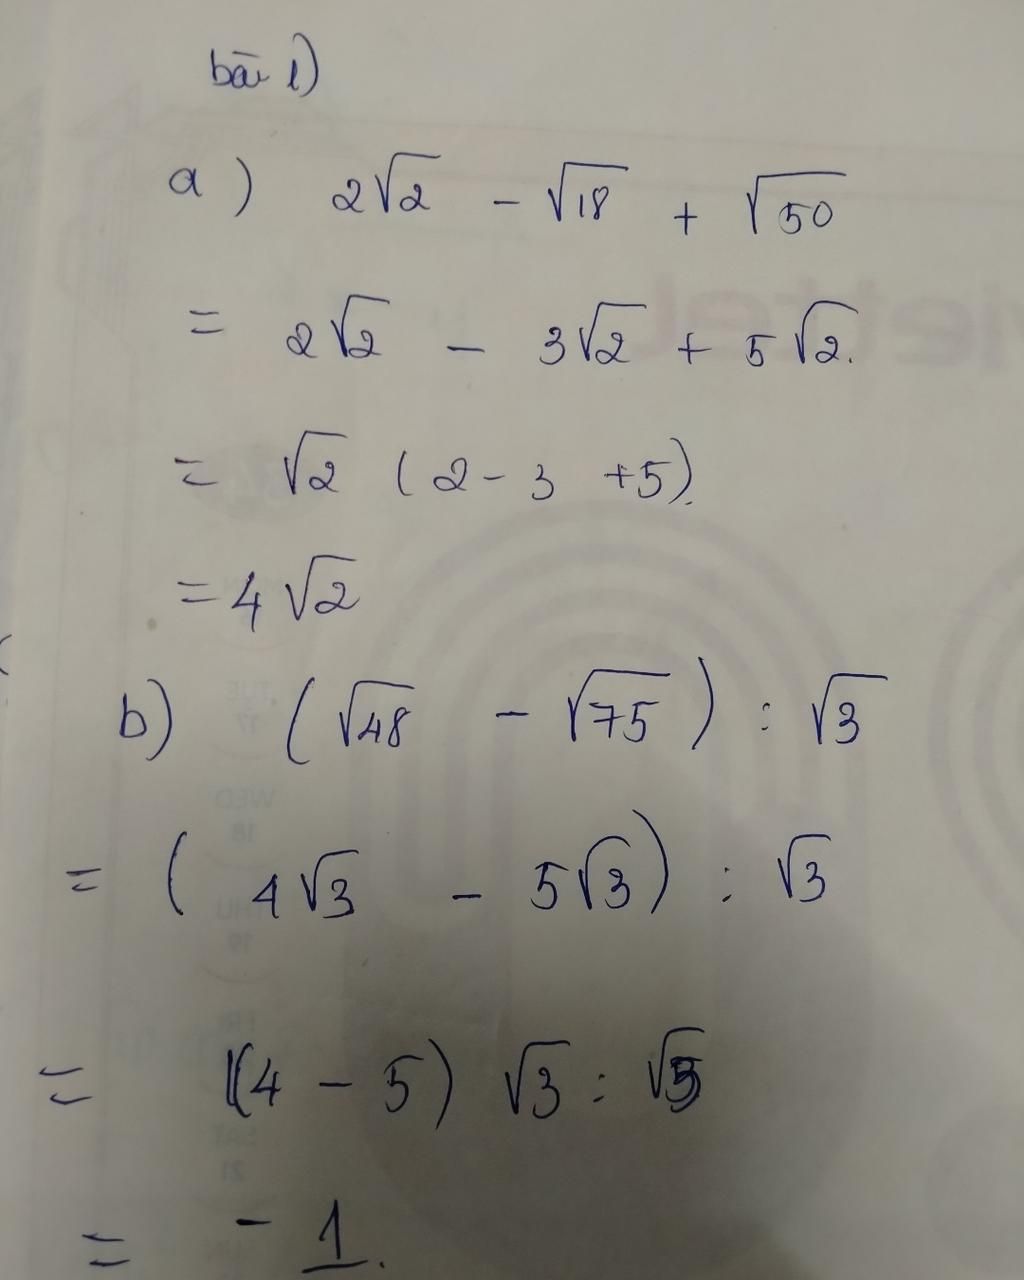 bài 1)
a) 2√2 - √18 + √50
= 2√2 - 3√2 + 5√2.
= √2 (2 - 3 + 5).
= 4√2
b) (√48 - √75) : √3
= (4√3 - 5√3) : √3
= (4 - 5) √3 : √3
= - 1.